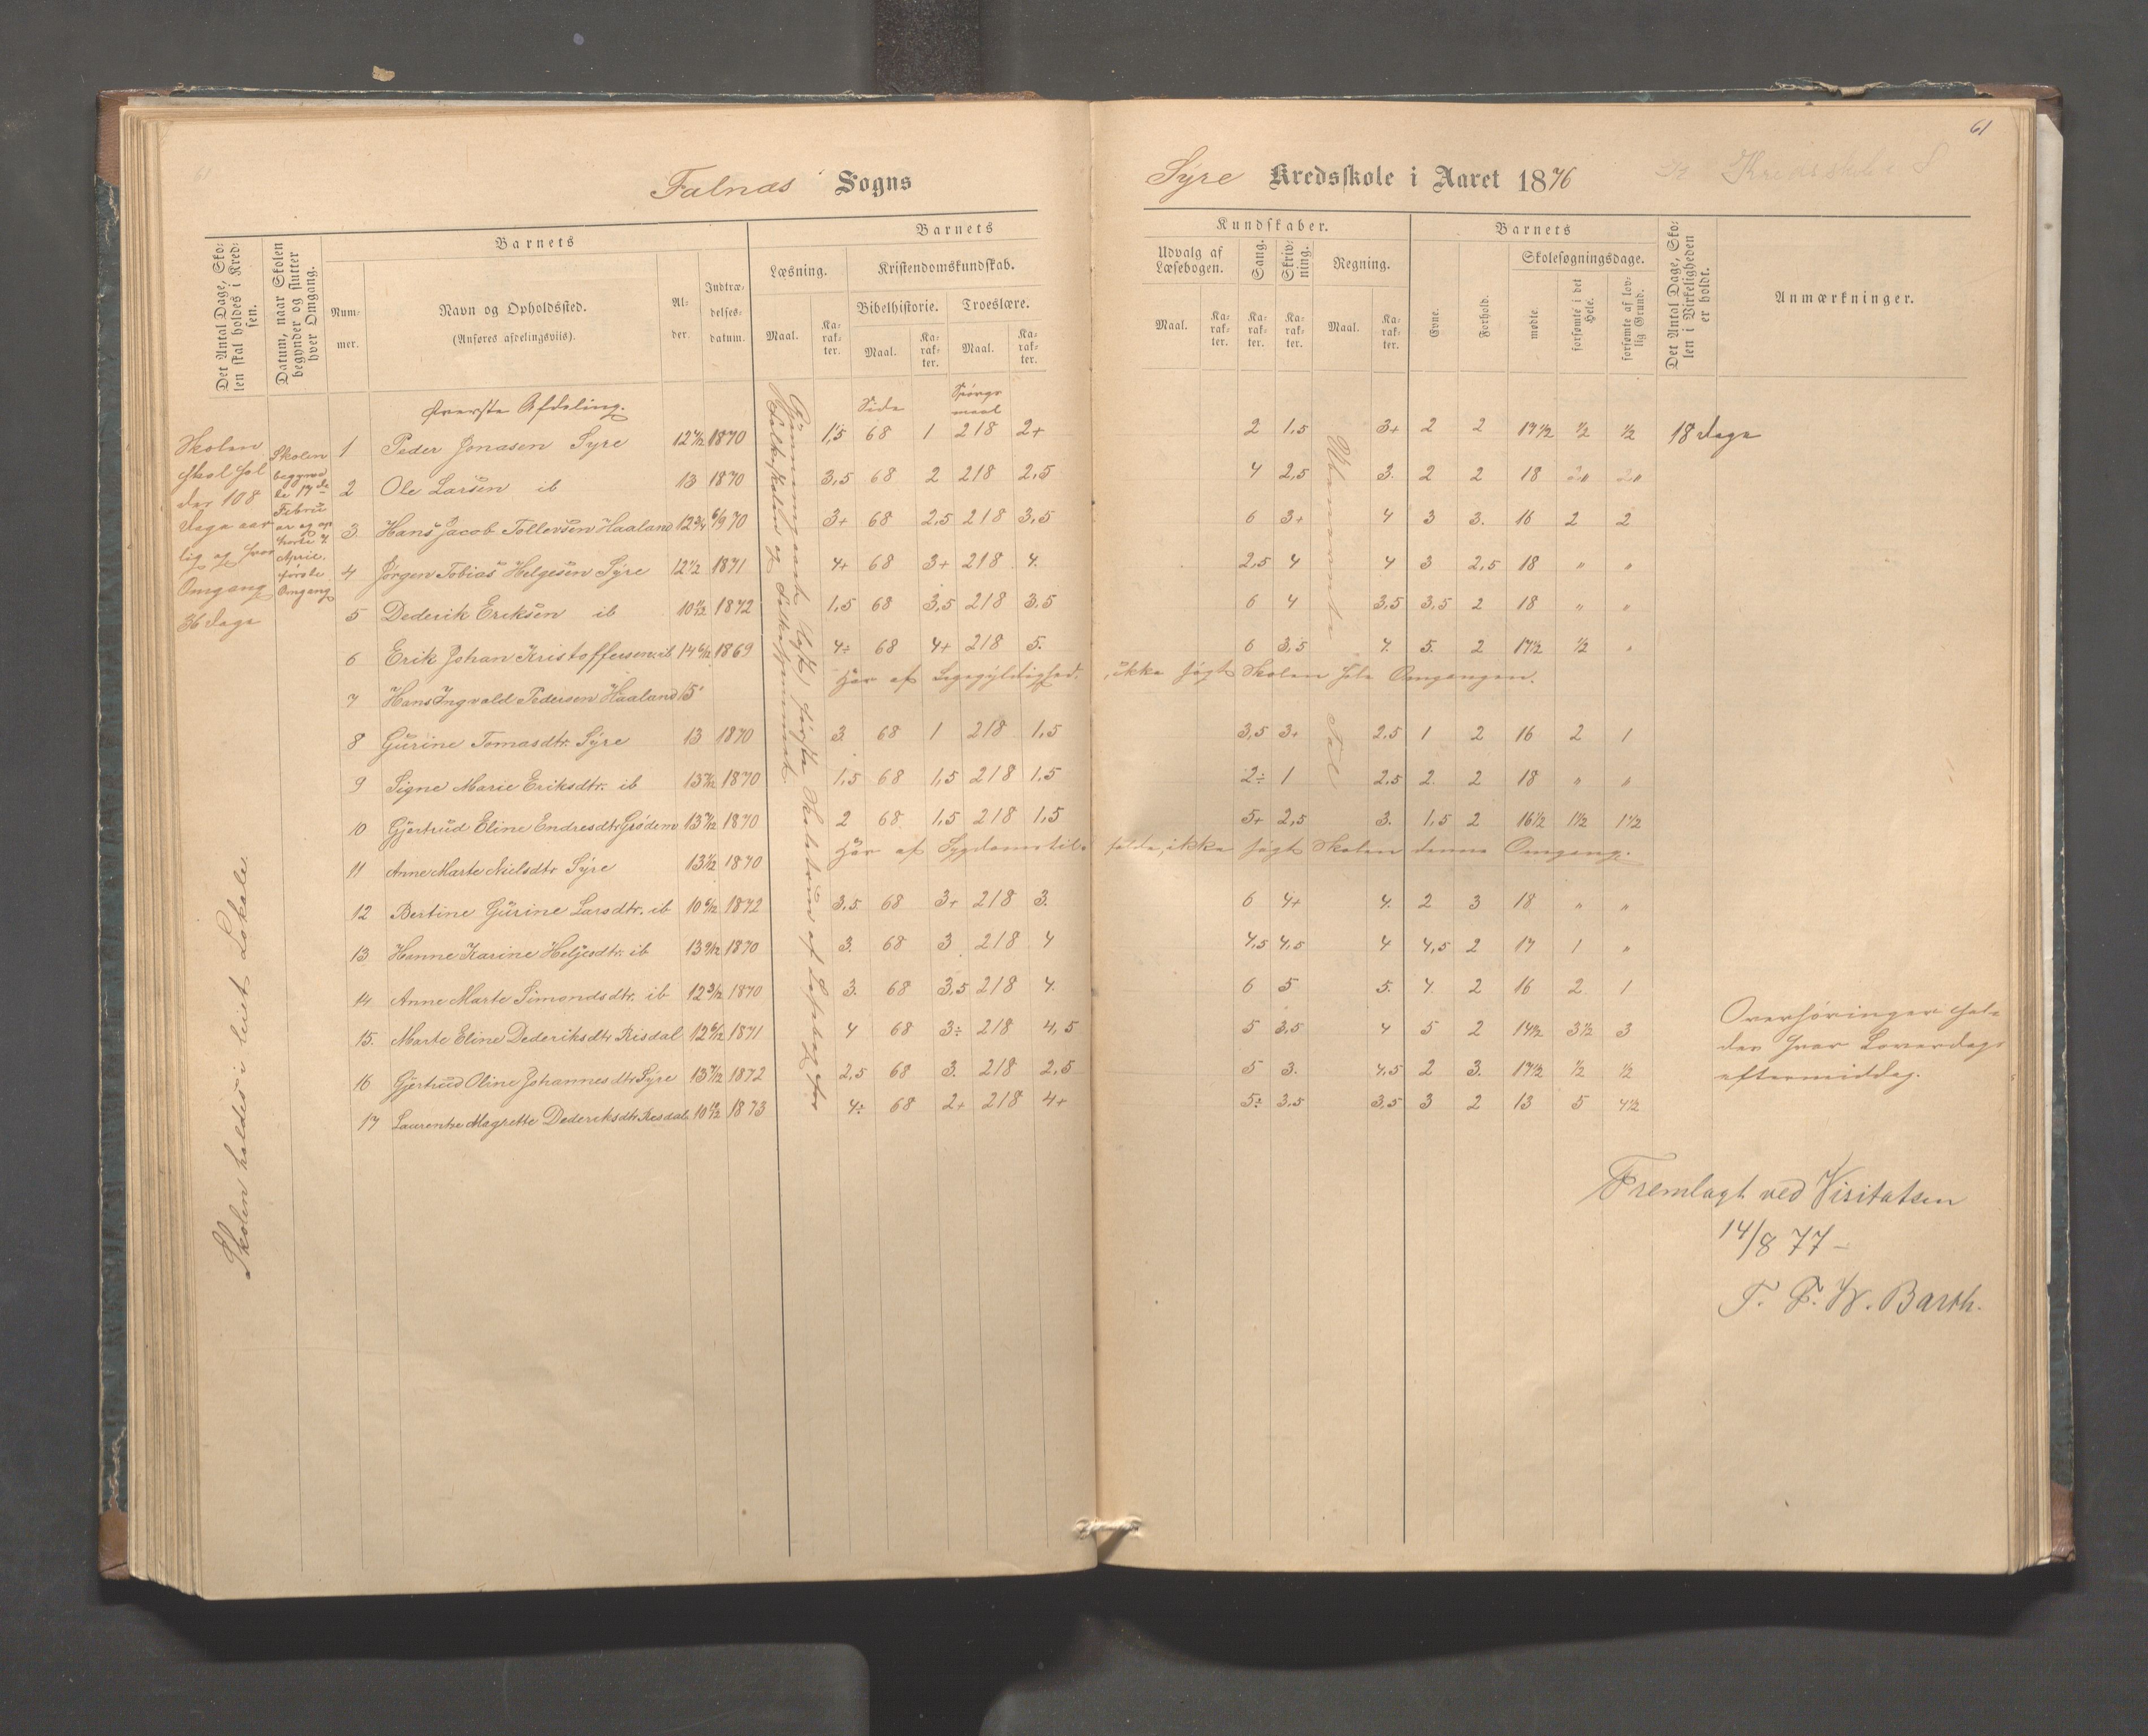 61
Falnæs Sogns
Syre Kredsskole i Aaret 1876
Det Antal Dage, Skolen skal holdes i Kredsen.
Datum, naar Skolen begynder og slutter hver Omgang.
Barnets
Nummer.
Navn og Opholdssted.
(Anføres afdelingsviis).
Alder.
Indtrædelsesdatum.
Barnets
Læsning.
Maal.
Karakter.
Kristendomskundskab.
Bibelhistorie.
Maal.
Karakter.
Troeslære.
Maal.
Karakter.
Kundskaber.
Udvalg af Læsebogen.
Maal.
Karakter.
Sang.
Karakter.
Skrivning.
Karakter.
Regning.
Maal.
Karakter.
Barnets
Evne.
Forhold.
Skolesøgningsdage.
mødte.
forsømte i det Hele.
forsømte af lovlig Grund.
Det Antal Dage, Skolen i Virkeligheden er holdt.
Anmærkninger.
Skolen
skal hol
des 108
Dage aar
lig og hver
Omgang
36 Dage
Skolen
begynd
te 17de
Febru
ar og op
hørte 7
April.
første
Omgang
Skolen holdes i leiet Lokale.
Øverste Afdeling.
Side
Spørgs
maal
1 Peder Jonasen Syre 12 1870 1,5 68 1 218 2+ 2 1,5 3+ 2 2 17 1/2 1/2 1/2 18 Dage
2 Ole Larsen ib 13 1870 3,5 68 2 218 2,5 4 2,5 3. 2 2 18
3 Hans Jacob Tollevsen Haaland 12 3/4 6/9 70 3+ 68 2,5 218 3,5 6 3+ 4 3 3. 16 2 2
4 Jørgen Tobias Helgesen Syre 12 1/2 1871 4+ 68 3+ 218 4. 2,5 4 4 3 2,5 18 " "
5 Dederik Eriksen ib 10 1872 1,5 68 3,5 218 3,5 6 4 3,5 3,5 2 18 " "
6 Erik Johan Kristoffersen ib 14 6/12 1869 4÷ 68 4+ 218 5. 6 3,5 4. 5. 2 17 1/2 1/2 "
7 Hans Ingvald Pedersen Haaland 15 Har af Ligegyldighed, ikke søgt Skolen hele Omgangen.
8 Gurine Tomasdtr. Syre 13 1870 3 68 1 218 1,5 3,5 3+ 2,5 1 2 16 2 1
9 Signe Marie Eriksdtr. ib 13 1870 1,5 68 1,5 218 1,5 2÷ 1 2,5 2 2 18 " "
10 Gjertrud Eline Endresdtr Grødem 13 1870 2 68 1,5 218 1,5 5+ 2,5 3. 1,5 2 16 1/2 1 1/2 1 1/2
11 Anne Marte Nielsdtr Syre 13 1870 Har af Sygdomstilfælde, ikke søgt Skolen denne Omgang.
12 Bertine Gurine Larsdtr. ib 10 6/12 1872 3,5 68 3+ 218 3. 6 4+ 4. 2 3 18 " "
13 Hanne Karine Heljesdtr. ib 13 9/12 1870 3. 68 3 218 4 4,5 4,5 4 4,5 2 17 1 "
14 Anne Marte Simondsdtr. ib 12 3/12 1870 3. 68 3,5 218 4. 6 5 5. 4. 2 16 2 1
15. Marte Eline Dederiksdtr Risdal 12 6/12 1871 4 68 3÷ 218 4,5 5 3,5 4 5 2 14 1/2 3 1/2 3
16 Gjertrud Oline Johannesdtr Syre 13 7/12 1872 2,5 68 3. 218 2,5 5 3. 4,5 2 3. 17 1/2 1/2 1/2
17 Laurentze Magrette Dederiksdtr Risdal 10 1873 4÷ 68 2+ 218 4+ 5÷ 3,5 3,5 3 2 13 5 4 1/2
Gjennemgaaet første Skoletrin af Læsebog for
Folkeskolen og Folkehjemmet.
Ubenævnte Tal
Overhøringer hol
des hver Løverdags
eftermiddag.
Fremlagt ved Visitatsen
14/8 77 –
T. F. W. Barth.